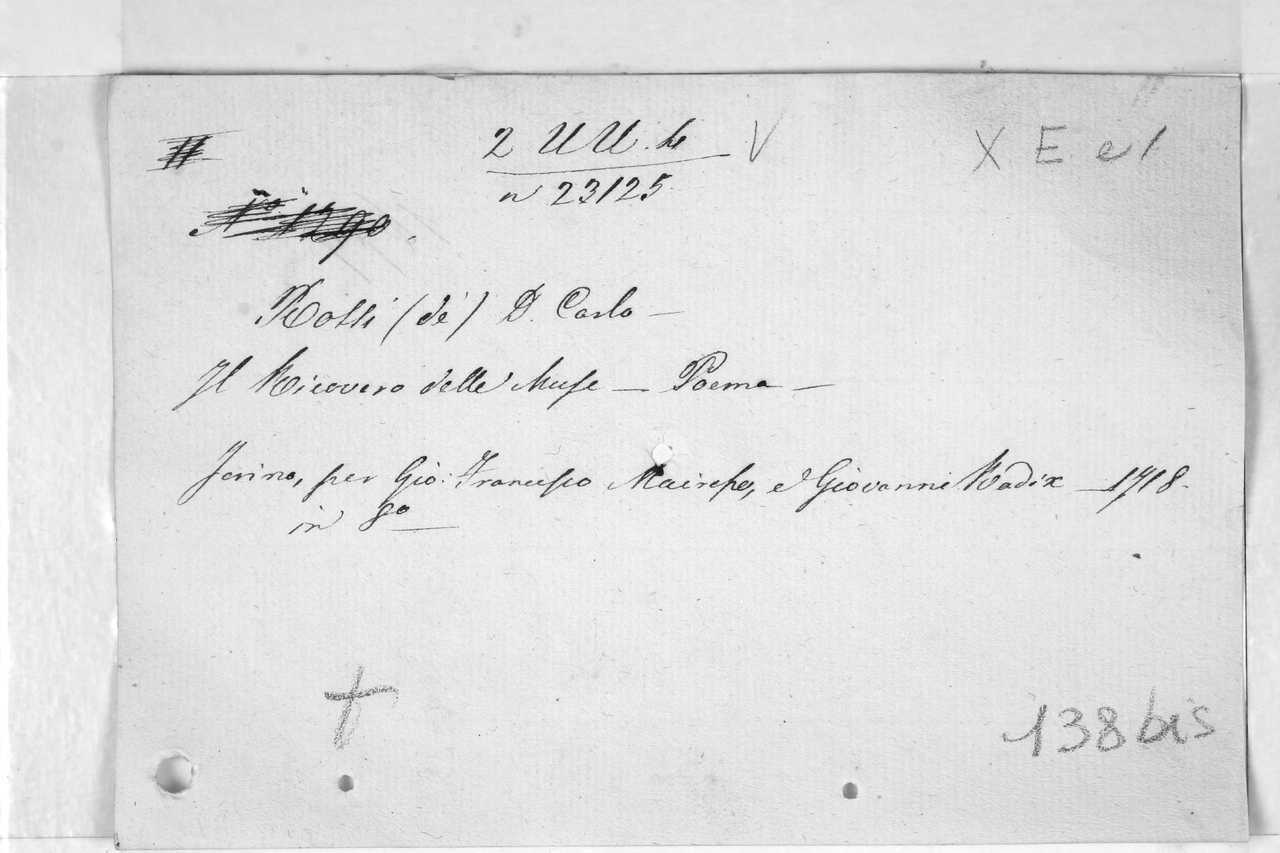 2 UU. 4 V X E e 1
n 23125
N.º 1290.
Rossi (de') D. Carlo —
Il Ricovero delle Muse — Poema —
Torino, per Gio: Francesco Mairesse, e Giovanni Radix — 1718.
in 8º
138 bis